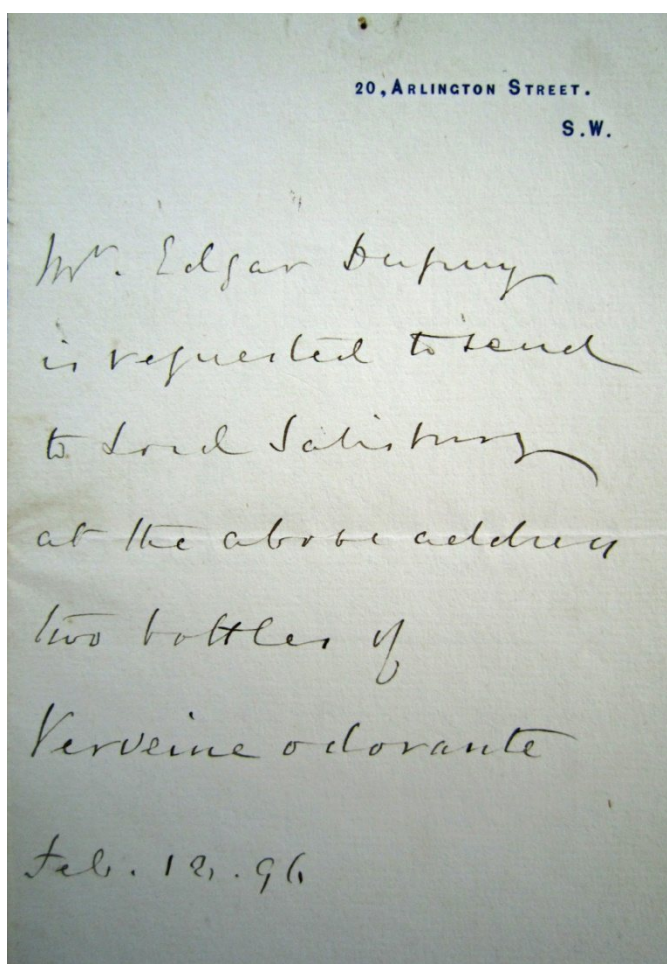 20, ARLINGTON STREET.
S.W.
Mr. Edgar Dupuy
is requested to send
to Lord Salisbury
at the above address
two bottles of
Verveine odorante
Feb. 12. 96